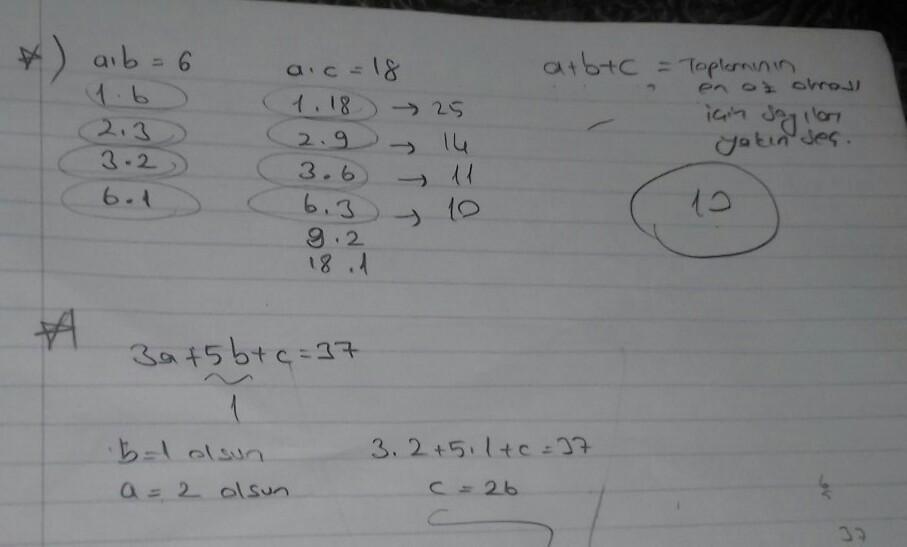 ☆) a.b = 6
1.6
2.3
3.2
6.1
a.c = 18
1.18 → 25
2.9 → 14
3.6 → 11
6.3 → 10
9.2
18.1
a+b+c = Toplamının
en az olması
için sayıları
yakın seç.
10
☆
3a+5b+c=37
1
b=1 olsun
a = 2 olsun
3.2+5.1+c=37
c = 26
37